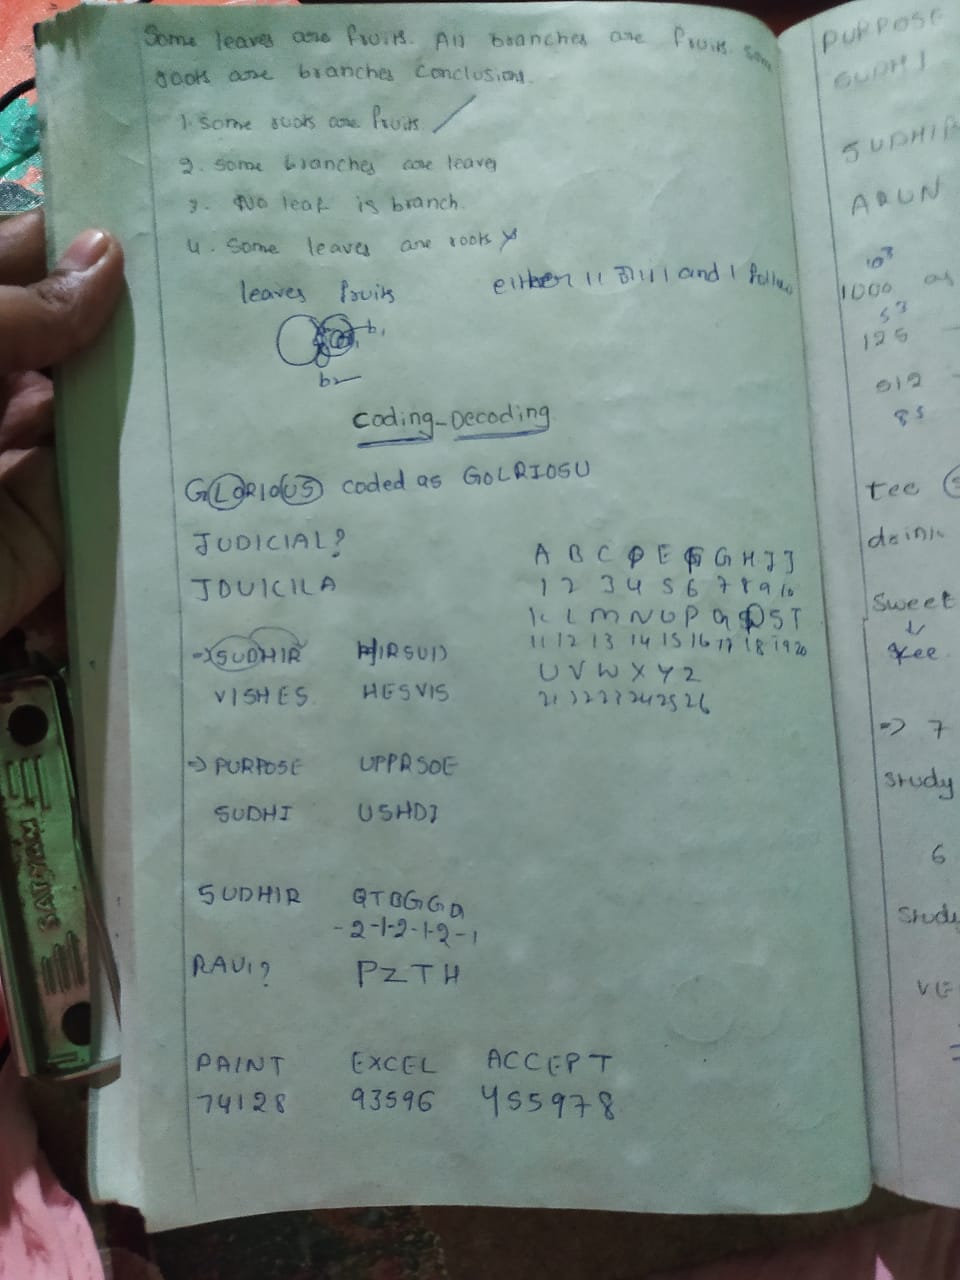 Some leaves are fruits. All branches are fruits some
roots are branches conclusions.
1. some roots are fruits.
2. some branches are leaves
3. No leaf is branch.
4. Some leaves are roots
leaves fruits
either II or III and I follows
b1
b2
Coding-Decoding
GLORIOUS coded as GOLRIOSU
JUDICIAL?
JDUICILA
A B C D E F G H I J
1 2 3 4 5 6 7 8 9 10
K L M N O P Q R S T
11 12 13 14 15 16 17 18 19 20
U V W X Y Z
21 22 23 24 25 26
=> SUDHIR HIRSUD
VISHES HESVIS
=> PURPOSE UPPRSOE
SUDHI USHDI
SUDHIR QTBGGQ
-2-1-2-1-2-1
RAVI? PZTH
PAINT EXCEL ACCEPT
74128 93596 455978
PURPOSE
SUDHI
SUDHIR
ARUN
10³
1000 as
5³
125
512
8³
tee
drink
Sweet
tee
=> 7
Study
6
Study
NATRAJ